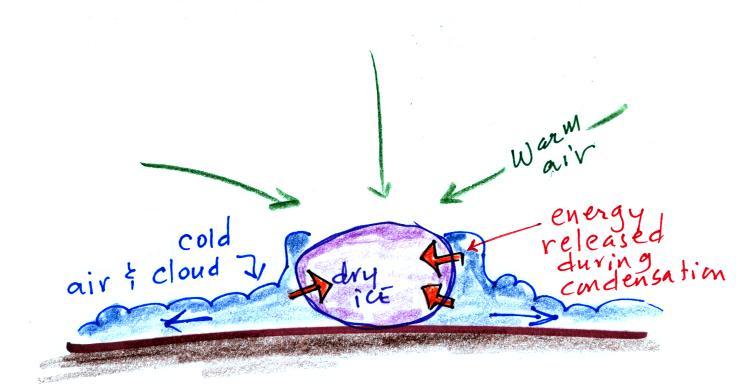 Warm
air
cold
air & cloud
dry
ICE
energy
released
during
condensation